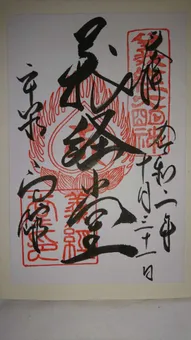 奉拝
令和二年
十月三十一日
義経堂
平泉
高館
義経